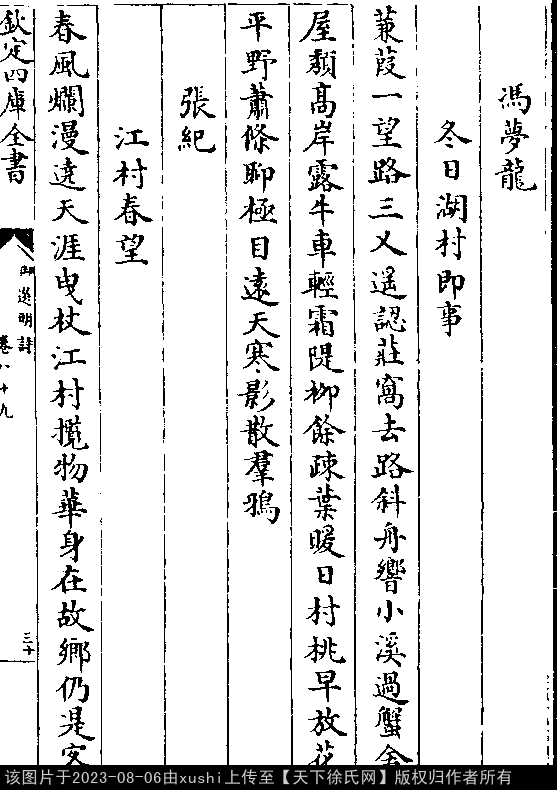 馮夢龍
冬日湖村即事
蒹葭一望路三乂遥認莊窩去路斜舟響小溪過蟹舍
屋頽髙岸露牛車輕霜隄柳餘疎葉暖日村桃早放花
平野蕭條聊極目遠天寒影散羣鴉
張紀
江村春望
春風爛漫遶天涯曳杖江村攬物華身在故鄉仍是客
欽定四庫全書
御選明詩
卷八十九
三十
该图片于2023-08-06由xushi上传至【天下徐氏网】版权归作者所有